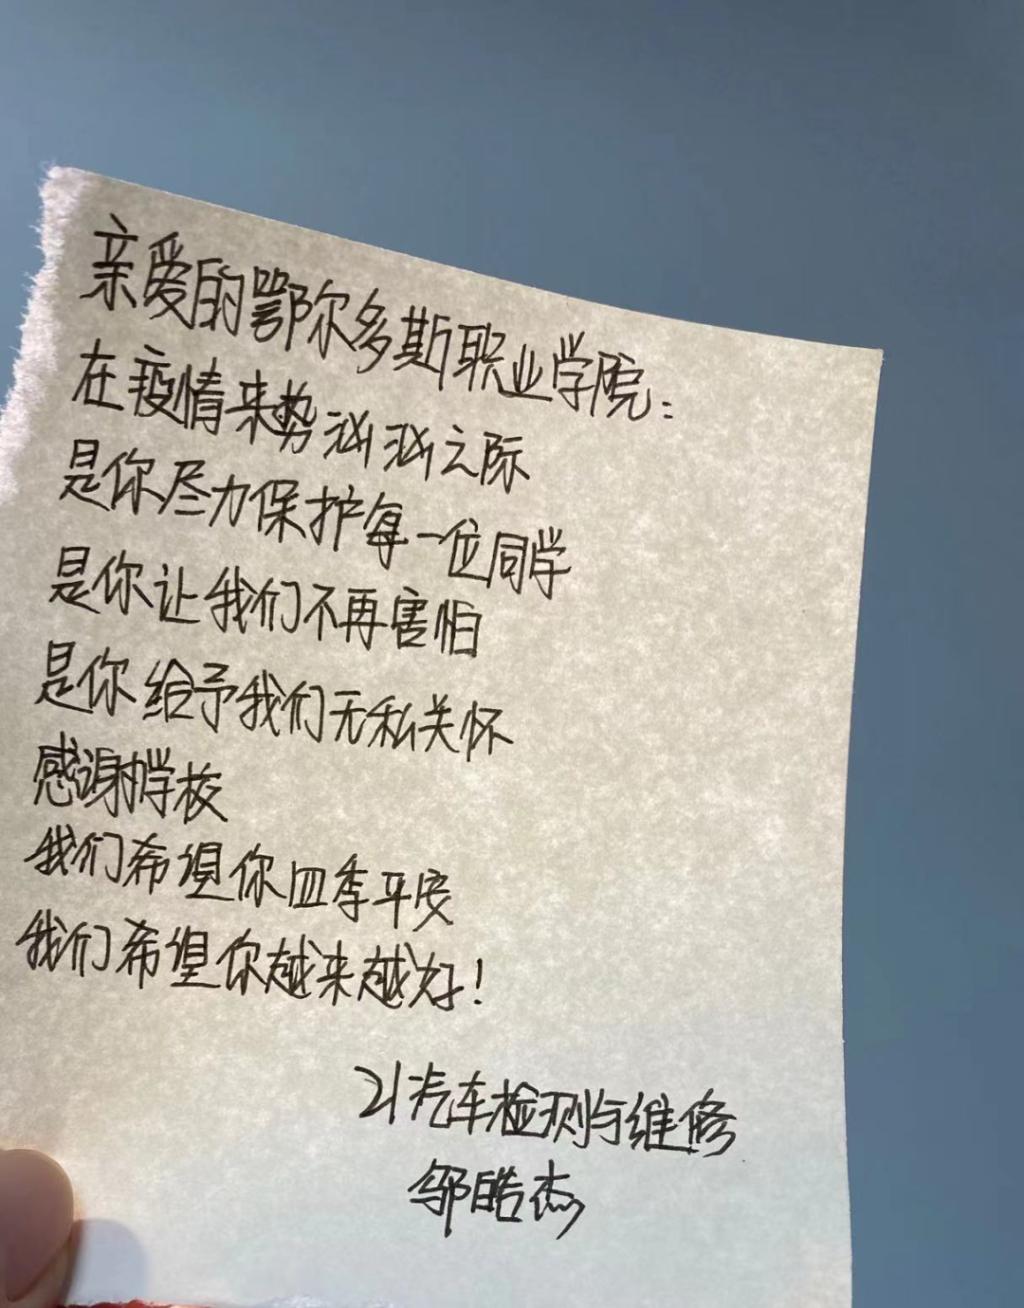 亲爱的鄂尔多斯职业学院：
在疫情来势汹汹之际
是你尽力保护每一位同学
是你让我们不再害怕
是你给予我们无私关怀
感谢学校
我们希望你四季平安
我们希望你越来越好！
21汽车检测与维修
邬皓杰